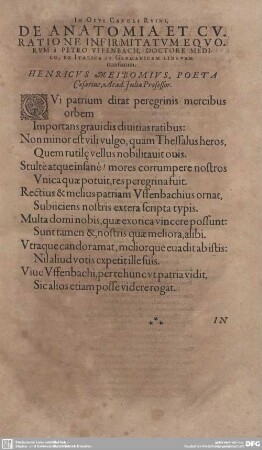 IN OPVS CAROLI RVINI,
DE ANATOMIA ET CV-
RATIONE INFIRMITATVM EQVO-
RVM A PETRO VFFENBACH, DOCTORE MEDI-
CO, EX ITALICA IN GERMANICAM LINGVAM
translatum.
HENRICVS MEIBOMIVS, POETA
Cæsarius, Acad. Juliæ Professor.
QVi patrium ditat peregrinis mercibus
orbem
Importans grauidis diuitias ratibus:
Non minor est vili vulgo, quam Thessalus heros,
Quem rutilę vellus nobilitauit ouis.
Stultè atque insanè! mores corrumpere nostros
Vnica quæ potuit, res peregrina fuit.
Rectius & melius patriam Vffenbachius ornat,
Subiiciens nostris extera scripta typis.
Multa domi nobis, quæ exotica vincere possunt:
Sunt tamen &, nostris quæ meliora, alibi.
Vtraque candor amat, meliorque euadit ab istis:
Nil aliud votis expetit ille suis.
Viue Vffenbachi, per te hunc vt patria vidit,
Sic alios etiam posse videre rogat.
IN